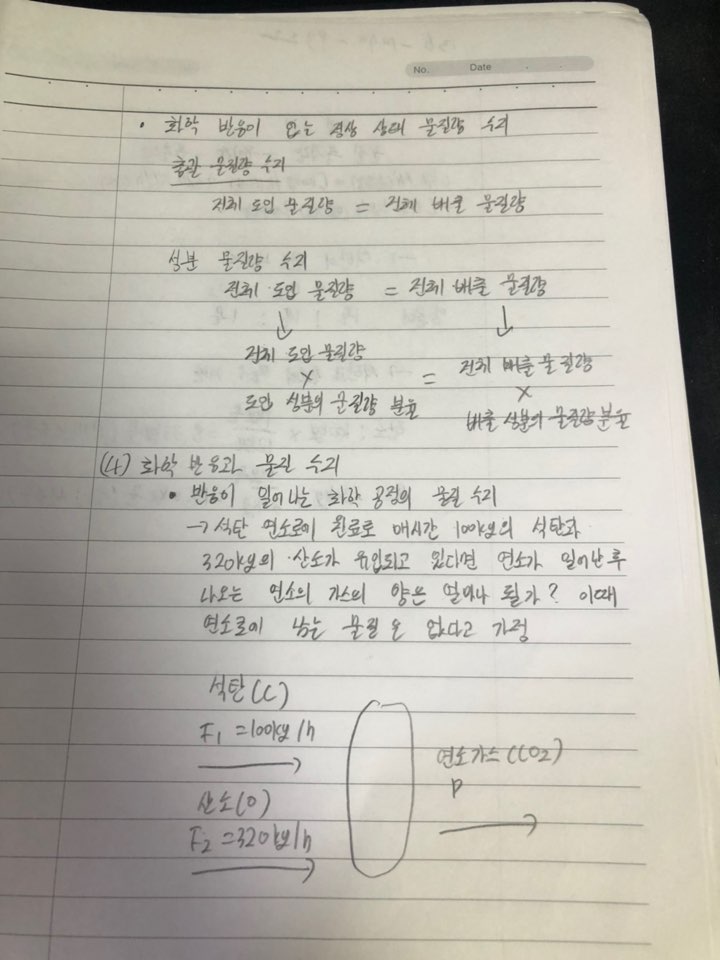 No. Date
• 화학 반응이 없는 정상 상태 물질량 수지
총괄 물질량 수지
전체 도입 물질량 = 전체 배출 물질량
성분 물질량 수지
전체 도입 물질량 = 전체 배출 물질량
↓ ↓
전체 도입 물질량 = 전체 배출 물질량
× ×
도입 성분의 물질량 분율 배출 성분의 물질량 분율
(4) 화학 반응과 물질 수지
• 반응이 일어나는 화학 공정의 물질 수지
→ 석탄 연소로에 원료로 매시간 100kg의 석탄과
320kg의 산소가 유입되고 있다면 연소가 일어난 후
나오는 연소의 가스의 양은 얼마나 될가? 이때
연소로에 남는 물질은 없다고 가정
석탄(C)
F1 = 100kg/h
연소가스(CO2)
P
산소(O)
F2 = 320kg/h